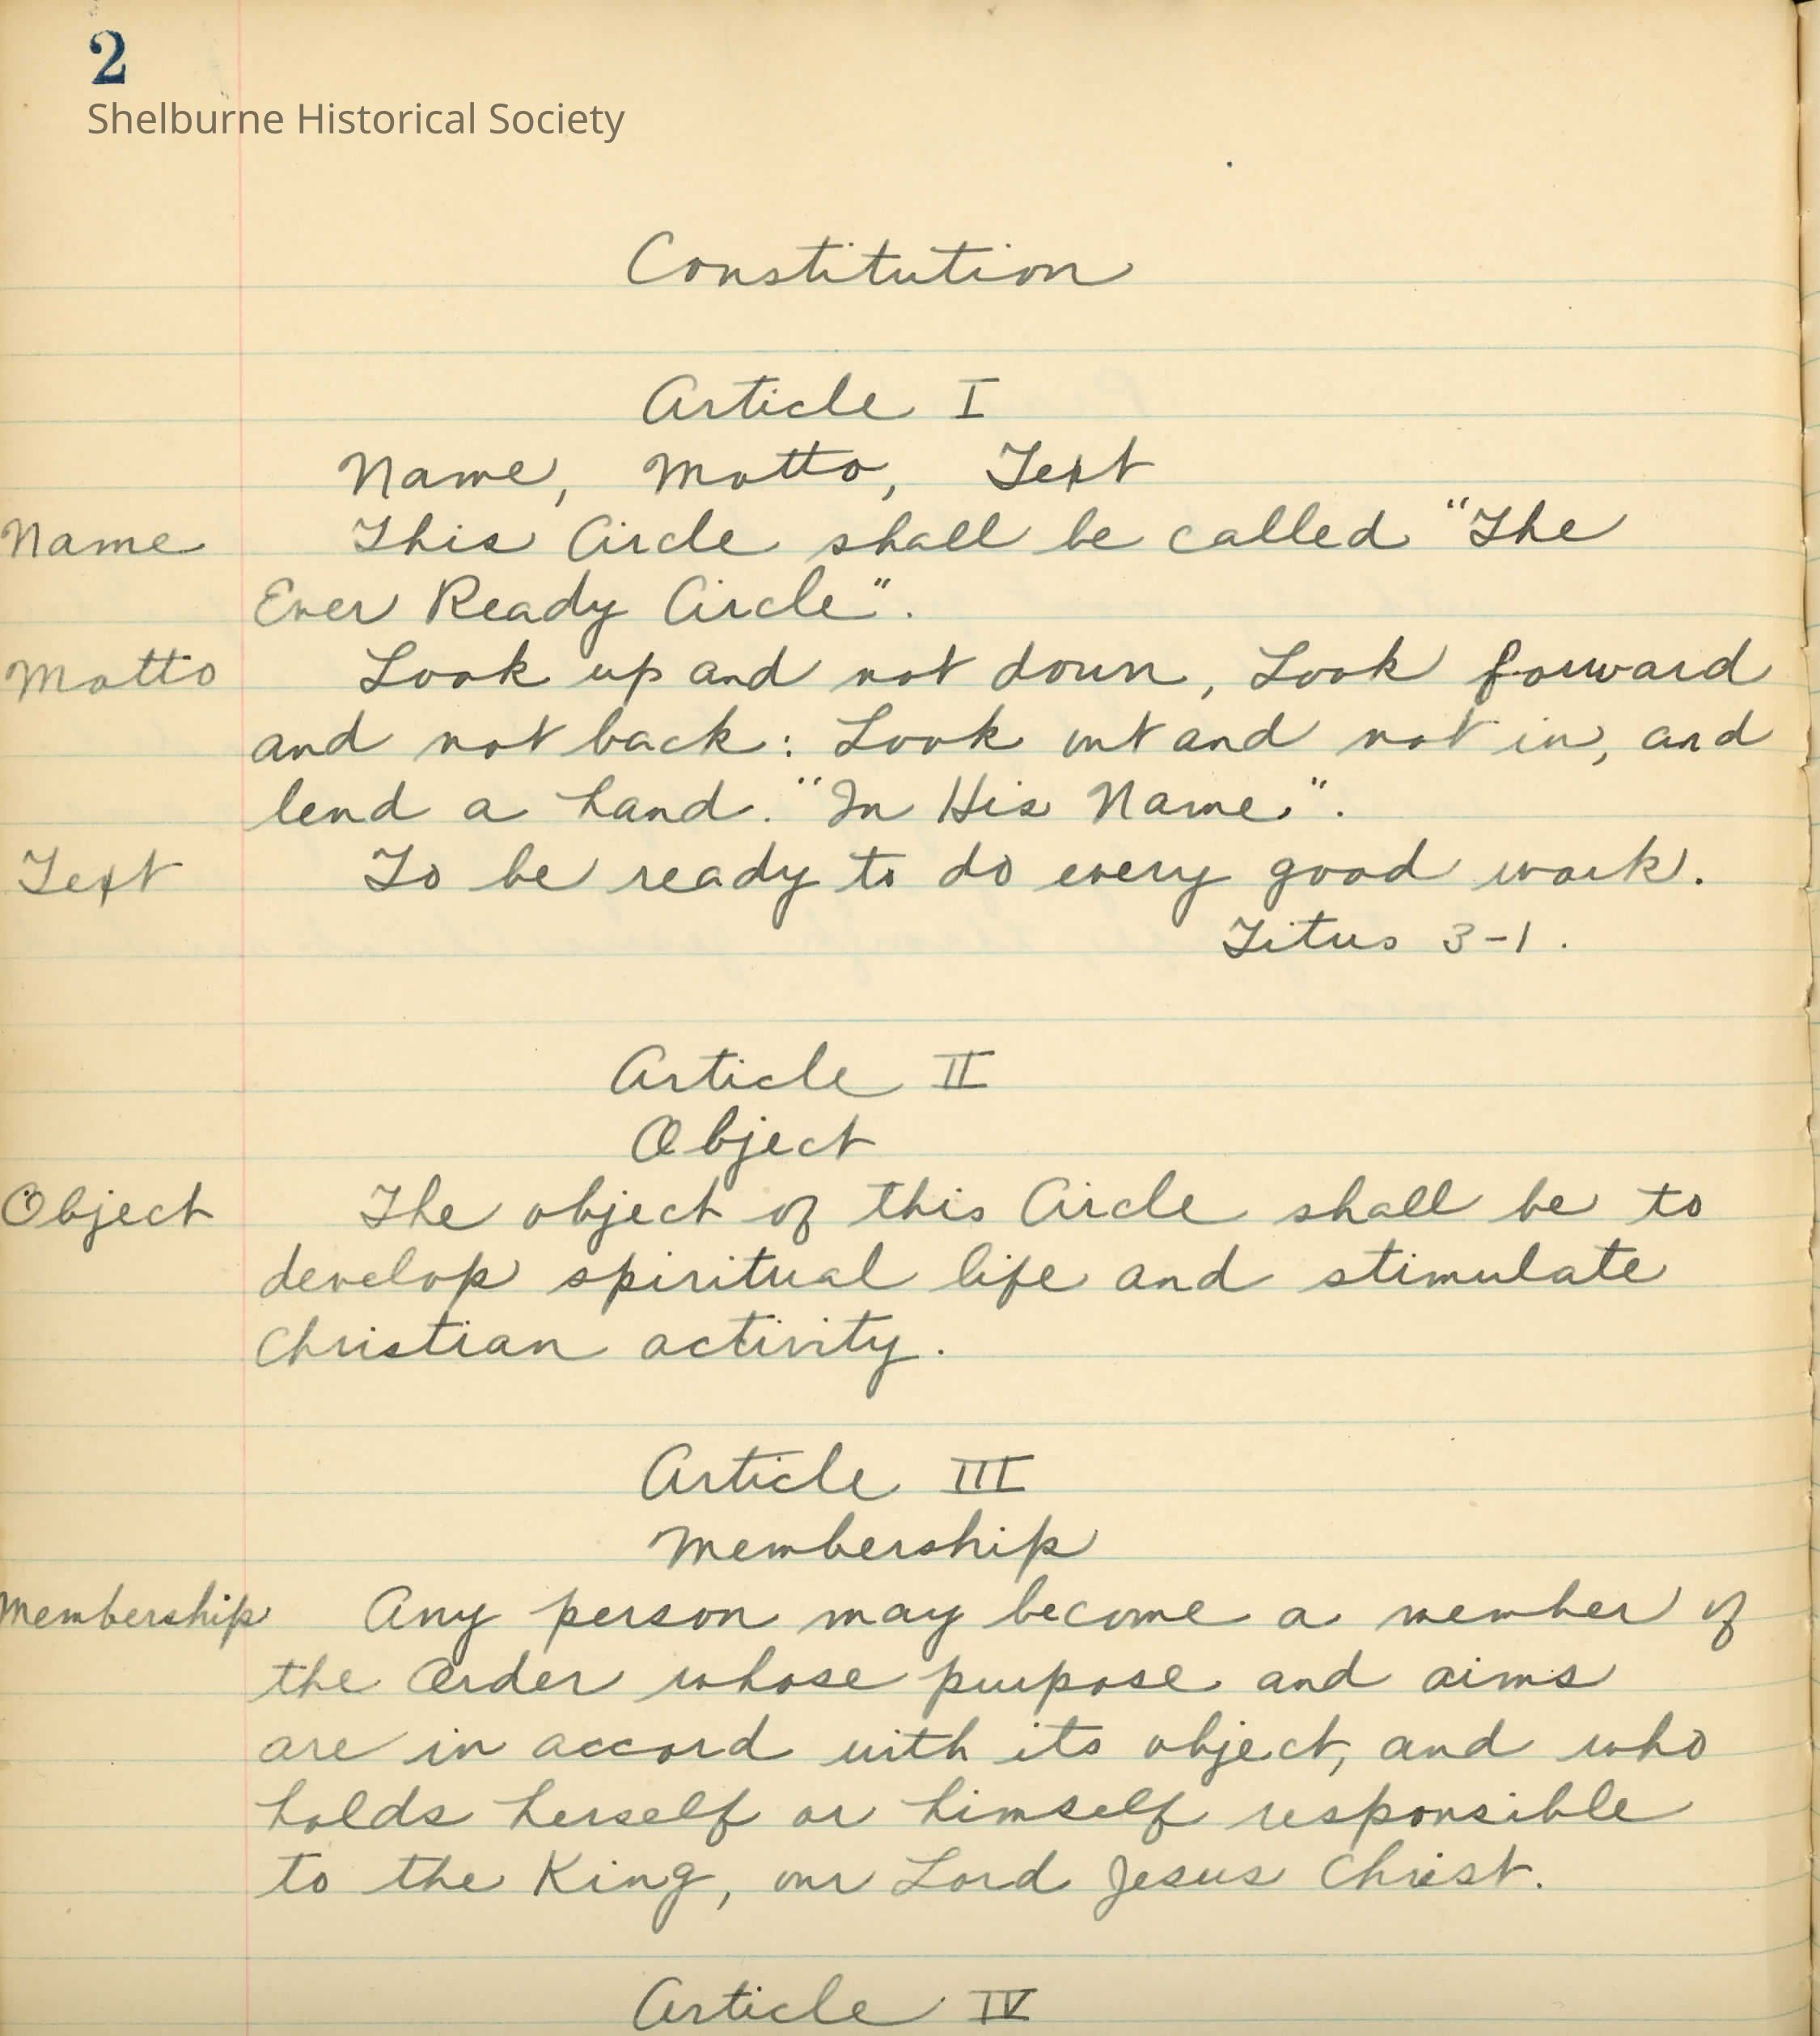 2
Shelburne Historical Society
Constitution
Article I
Name, Motto, Text
Name This Circle shall be called "The
Ever Ready Circle".
Motto Look up and not down, Look forward
and not back: Look out and not in, and
lend a hand. "In His Name".
Text To be ready to do every good work.
Titus 3-1.
Article II
Object
Object The object of this Circle shall be to
develop spiritual life and stimulate
Christian activity.
Article III
Membership
Membership Any person may become a member of
the Order whose purpose and aims
are in accord with its object, and who
holds herself or himself responsible
to the King, our Lord Jesus Christ.
Article IV